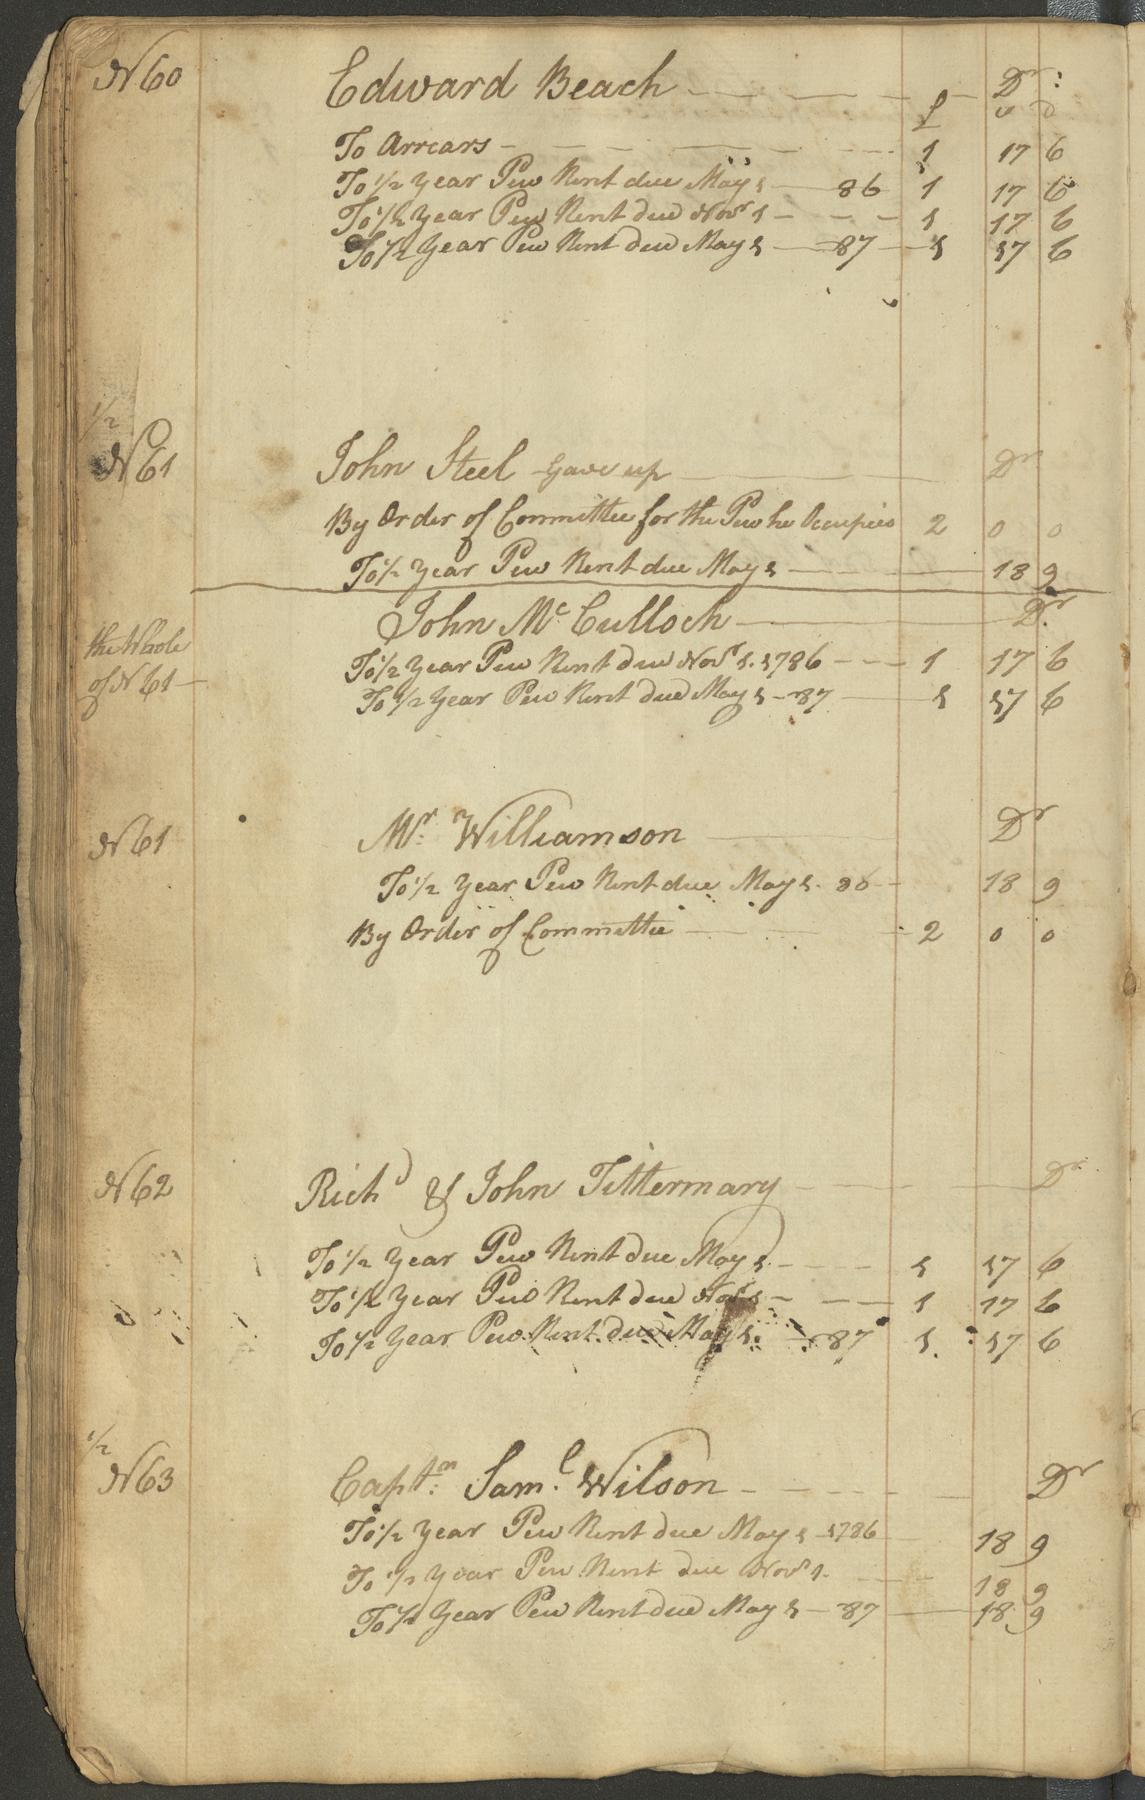 N 60 Edward Beach Dr:
£ s d
To Arrears 1 17 6
To 1/2 Year Pew Rent due May 1 86 1 17 6
To 1/2 Year Pew Rent due Novr 1 1 17 6
To 1/2 Year Pew Rent due May 1 87 1 17 6
1/2
N 61 John Steel Gave up Dr
By Order of Committee for the Pew he Occupies 2 0 0
To 1/2 Year Pew Rent due May 1 18 9
John Mc Culloch Dr
the Whole
of N 61
To 1/2 Year Pew Rent due Novr 1. 1786 1 17 6
To 1/2 Year Pew Rent due May 1 87 1 17 6
N 61 Mr. Williamson Dr
To 1/2 Year Pew Rent due May 1. 86 18 9
By Order of Committee 2 0 0
N 62 Richd & John Tittermary Dr
To 1/2 Year Pew Rent due May 1 1 17 6
To 1/2 Year Pew Rent due Novr 1 1 17 6
To 1/2 Year Pew Rent due May 1. 87 1 17 6
1/2
N 63 Captn. Saml. Wilson Dr
To 1/2 Year Pew Rent due May 1 1786 18 9
To 1/2 Year Pew Rent due Novr 1. 18 9
To 1/2 Year Pew Rent due May 1 87 18 9